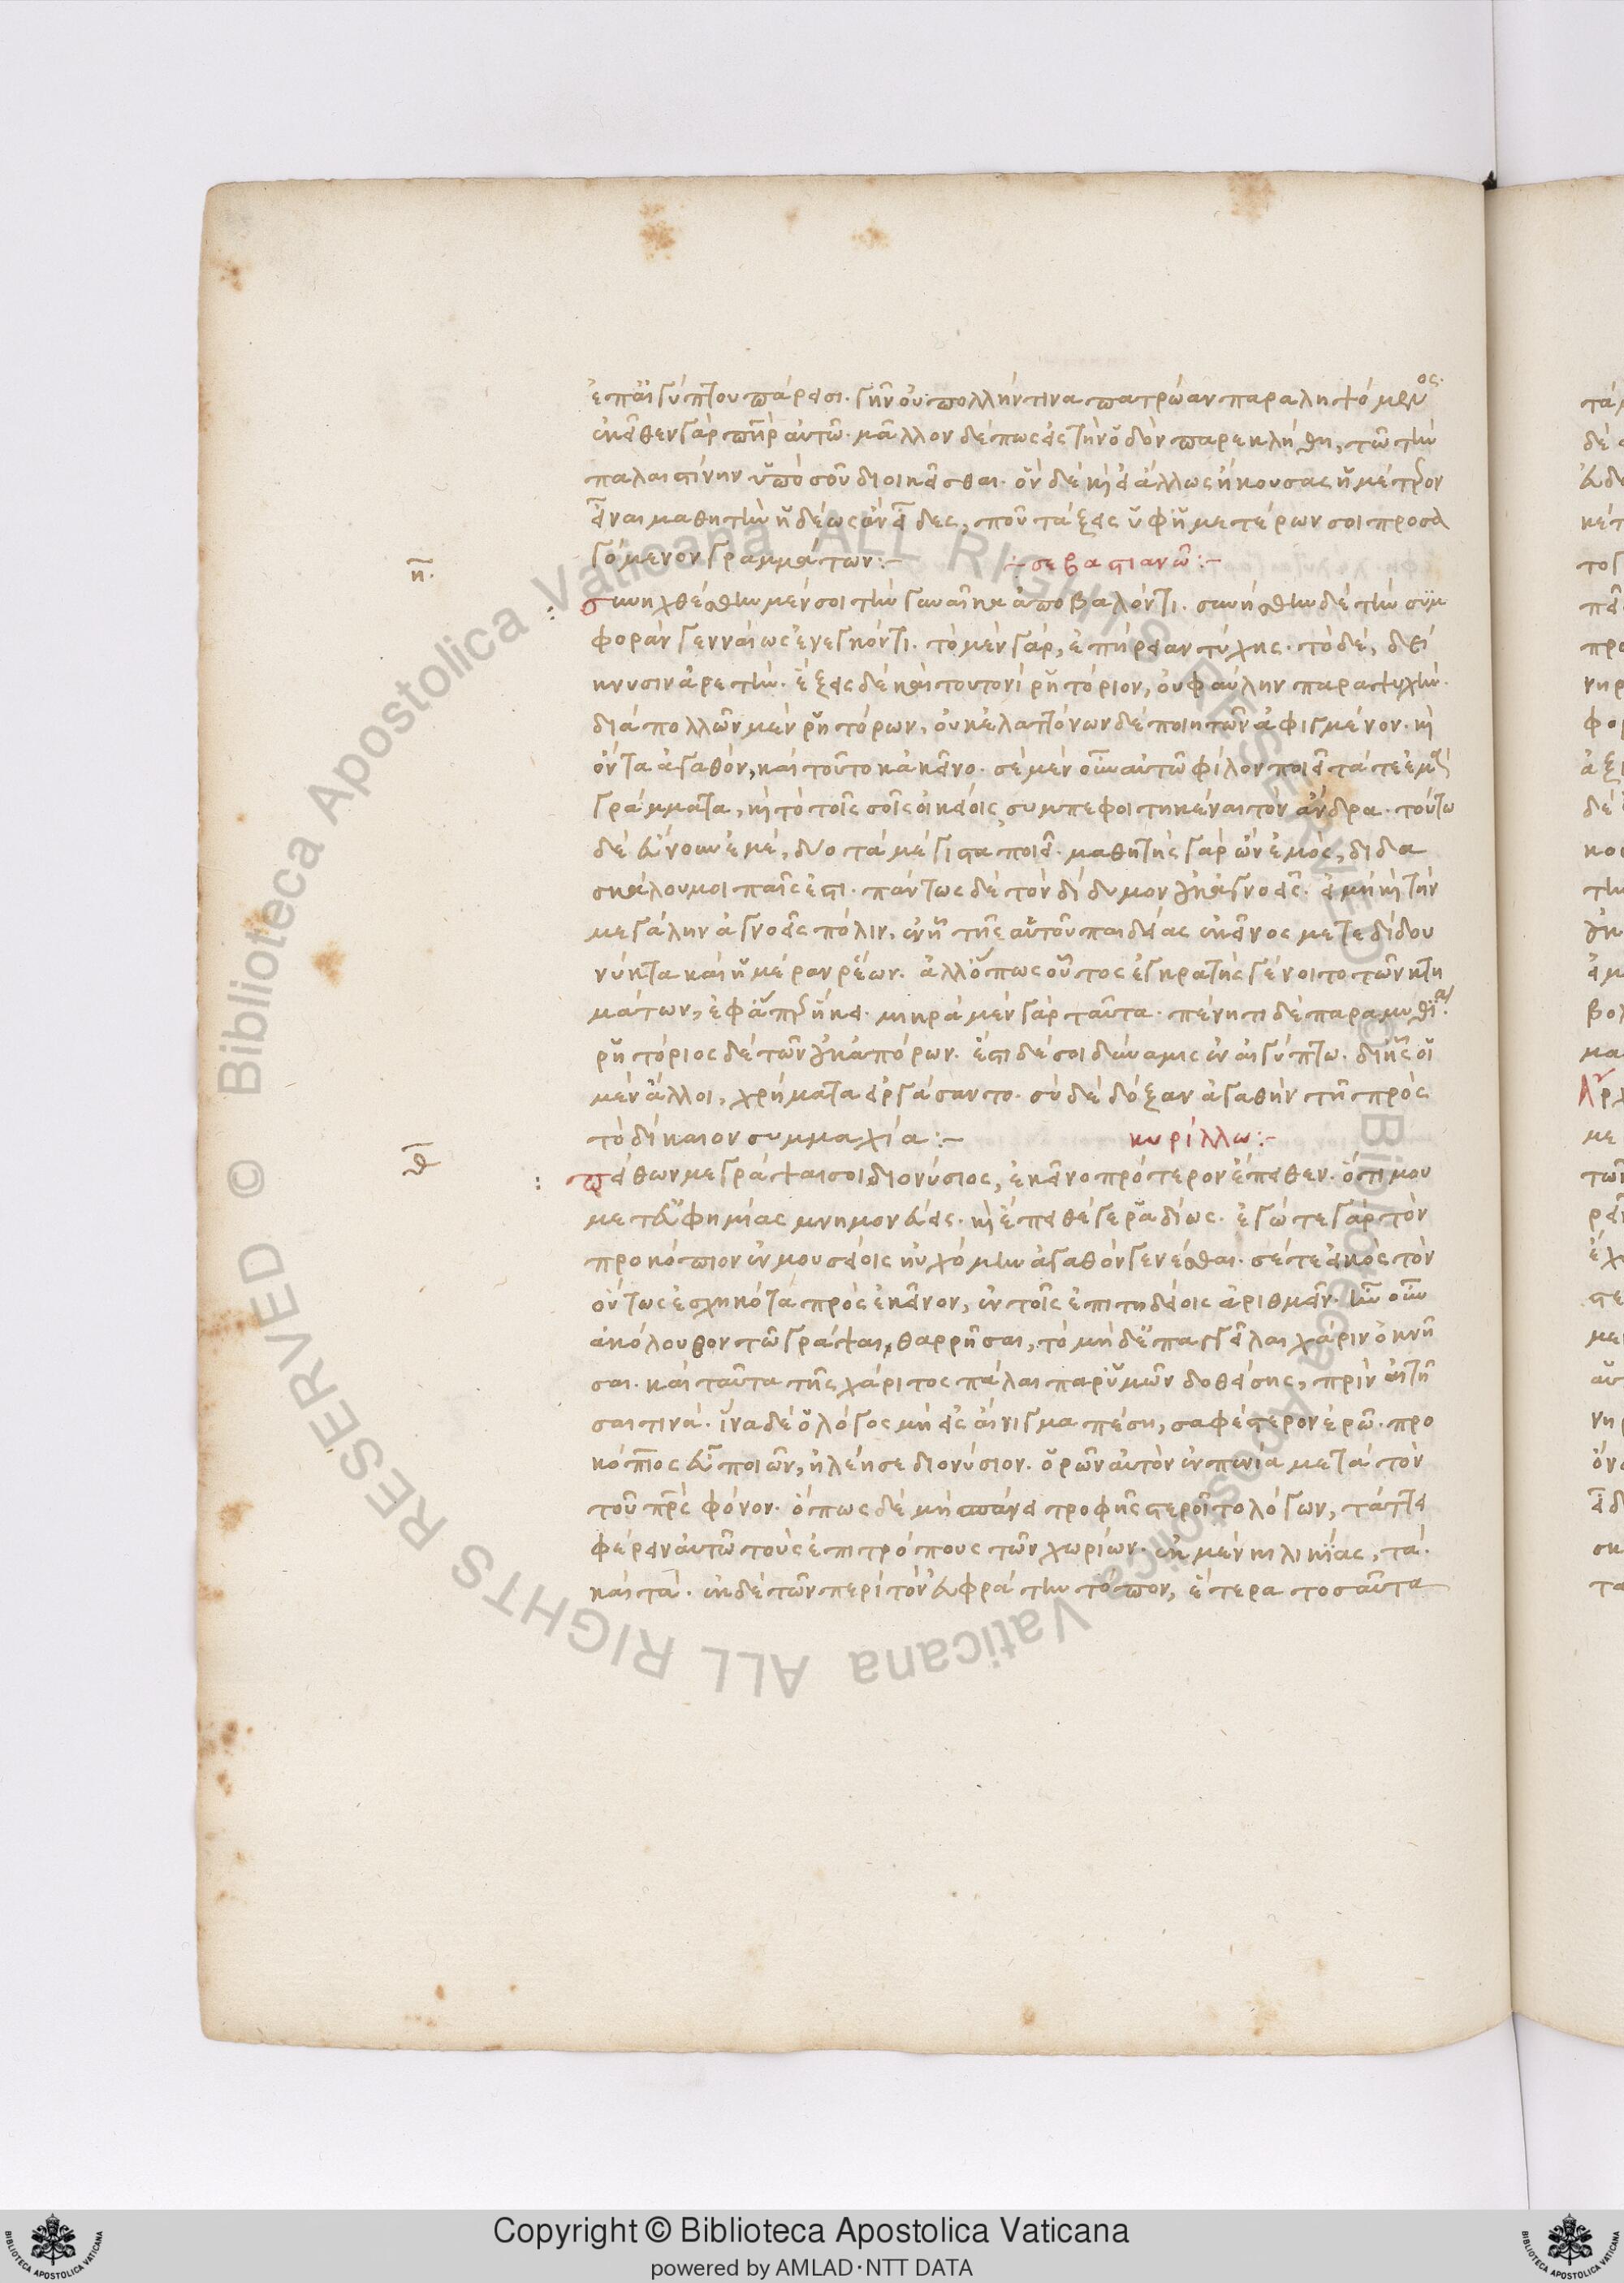 ἐπ' αἰγύπτου πάρεισι. γῆν οὐ πολλήν τινα πατρώαν παραληψόμενος.
ἐκεῖθεν γὰρ πὴρ αὐτῶ. μᾶλλον δέ πως εἰς τὴν ὁδὸν παρεκλήθη, τῶ τὴν
παλαιστίνην ὑπὸ σοῦ διοικεῖσθαι. ὃν δὲ κἂν εἰ ἄλλως ἤκουσας ἡμέτερον
εἶναι μαθητὴν ἡδέως ἂν εἶδες, σποῦ τάξεις ὑφ' ἡμετέρων σοι προσα
γόμενον γραμμάτων:-
η. -:- σεβαστιανῶ:-
συνηχθέσθην μέν σοι τὴν γυναῖκα ἀποβαλόντι. συνήσθην δὲ τὴν συμ
φορὰν γενναίως ἐνεγκόντι. τὸ μὲν γὰρ, ἐπήρειαν τύχης. τὸ δὲ, δεί
κνυσιν ἀρετήν. ἕξεις δὲ καὶ τουτονὶ ῥητόριον, οὐ φαύλην παραψυχήν.
διὰ πολλῶν μὲν ῥητόρων, οὐκ ἐλαττόνων δὲ ποιητῶν ἀφιγμένον. καὶ
ὄντα ἀγαθὸν, καὶ τοῦτο κἀκεῖνο. σὲ μὲν οὖν αὐτῶ φίλον ποιεῖ τά τε ἐμὰ
γράμματα, καὶ τὸ τοῖς σοῖς οἰκείοις συμπεφοιτηκέναι τὸν ἄνδρα. τούτω
δὲ εὔνουν ἐμὲ, δύο τὰ μέγιστα ποιεῖ. μαθητής γὰρ ὢν ἐμὸς, διδα
σκάλου μοι παῖς ἐστι. πάντως δὲ τὸν δίδυμον οὐκ ἀγνοεῖς. εἰ μὴ καὶ τὴν
μεγάλην ἀγνοεῖς πόλιν, ἐν ἧ τῆς αὐτοῦ παιδείας ἐκεῖνος μετεδίδου
νύκτα καὶ ἡμέραν ῥέων. ἀλλ' ὅπως οὗτος ἐγκρατὴς γένοιτο τῶν κτη
μάτων, ἐφ' ἅπερ ἥκει. μικρὰ μὲν γὰρ ταῦτα. πένητι δὲ παραμυθία.
ῥητόριος δὲ τῶν οὐκ ἀπόρων. ἔστι δέ σοι δύναμις ἐν αἰγύπτω. δι' ἧς οἱ
μὲν ἄλλοι, χρήματα εἰργάσαντο. σὺ δὲ δόξαν ἀγαθὴν τῆ πρὸς
τὸ δίκαιον συμμαχία:- κυρίλλω:-
θ πείθων με γράψαι σοι διονύσιος, ἐκεῖνο πρότερον ἔπειθεν. ὅτι μου
μετ' εὐφημίας μνημονεύεις. καὶ ἔπειθέ γε ῥαδίως. ἐγώ τε γὰρ τὸν
προκόπιον ἐν μουσείοις ηὐχόμην ἀγαθὸν γενέσθαι. σέ τε εἰκὸς τὸν
οὕτως ἐσχηκότα πρὸς ἐκεῖνον, ἐν τοῖς ἐπιτηδείοις ἀριθμεῖν. ἦν οὖν
ἀκόλουθον τῶ γράψαι, θαρρῆσαι, τὸ μηδ' ἐπαγγεῖλαι χάριν ὀκνῆ
σαι. καὶ ταῦτα τῆς χάριτος πάλαι παρ' ὑμῶν δοθείσης, πρὶν αἰτῆ
σαι τινά. ἵνα δὲ ὁ λόγος μὴ εἰς αἴνιγμα πέση, σαφέστερον ἐρῶ. προ
κόπιος εὖ ποιῶν, ἠλέησε διονύσιον. ὁρῶν αὐτὸν ἐν πενία μετὰ τὸν
τοῦ πρς φόνον. ὅπως δὲ μὴ σπάνει τροφῆς στεροῖτο λόγων, τάττει
φέρειν αὐτῶ τοὺς ἐπιτρόπους τῶν χωρίων. ἐκ μὲν κιλικίας, τὰ.
καὶ τά. ἐκ δὲ τῶν περὶ τὸν εὐφράτην τόπον, ἕτερα τοσαῦτα
Copyright © Biblioteca Apostolica Vaticana
powered by AMLAD·NTT DATA